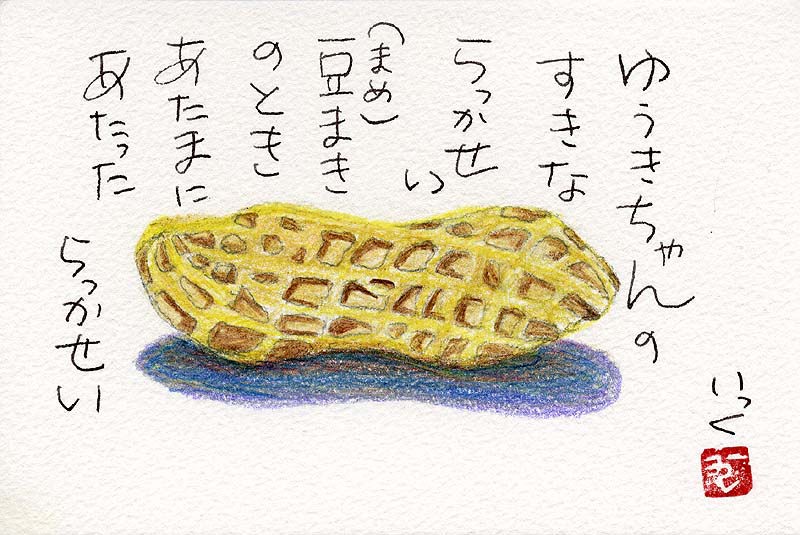 ゆうきちゃんの
すきな
らっかせ
い
(まめ)
豆まき
のとき
あたまに
あたった
らっかせい
いっく